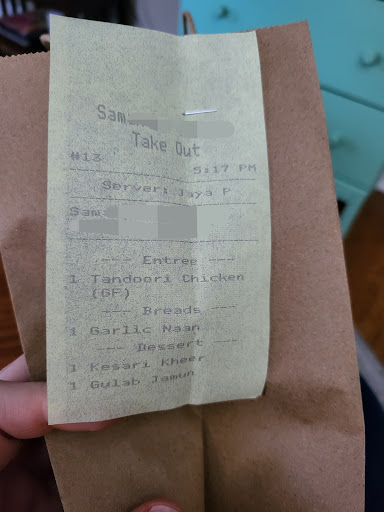 Sam
Take Out
#13 5:17 PM
Server: Jaya P
Sam
--- Entree ---
1 Tandoori Chicken
(GF)
--- Breads ---
1 Garlic Naan
--- Dessert ---
1 Kesari Kheer
1 Gulab Jamun